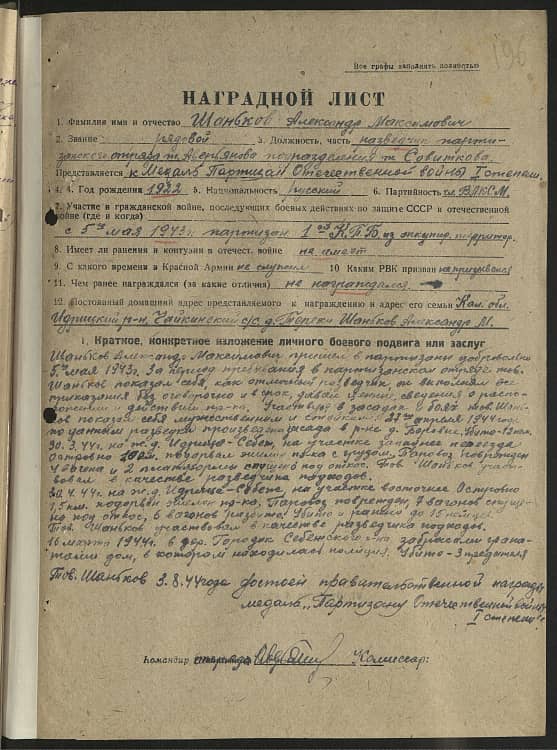 Все графы заполнять полностью
196
НАГРАДНОЙ ЛИСТ
1. Фамилия имя и отчество Шаньков Александр Максимович
2. Звание рядовой 3. Должность, часть разведчик парти-
занского отряда т. подразделения т. Совиткова.
Представляется к Медаль Партизан Отечественной войны I степени
4. Год рождения 1922 5. Национальность русский 6. Партийность чл. ВЛКСМ.
7. Участие в гражданской войне, последующих боевых действиях по защите СССР и отечественной
войне (где и когда)
с 5го мая 1943г. партизан 1ой К.П.Б. из оккупир. территор.
8. Имеет ли ранения и контузии в отечест. войне не имеет
9. С какого времени в Красной Армии не служит 10 Каким РВК призван не призывался
11. Чем ранее награждался (за какие отличия) не награждался.
12. Постоянный домашний адрес представляемого к награждению и адрес его семьи Кал. обл.
Идрицкий р-н, Чайкинский с/с д. Тереки Шаньков Александр М.
I. Краткое, конкретное изложение личного боевого подвига или заслуг
Шаньков Александр Максимович пришел в партизаны добровольно
5го мая 1943г. За период пребывания в партизанском отряде тов.
Шаньков показал себя, как отличный разведчик он выполнял все
приказания без оговорочно и в срок, давал ценные сведения о распо-
ложении и действии пр-ка. Участвуя в засадах и боях тов. Шань-
ков показал себя мужественным и стойким. апреля 1944г.
по данным разведки произведена засада в р-не д. Убито
30.3.44г. на ж.д. Идрица-Себеж, на участке западнее
подорвал эшелон пр-ка с грузом. Паровоз поврежден
4 вагона и 2 платформы спущено под откос. Тов. Шаньков участ-
вовал в качестве разведчика подходов.
4.44г. на ж.д. Идрица-Себеж, на участке восточнее
1,5 км. подорвал эшелон пр-ка. Паровоз поврежден, 7 вагонов
под откос, 6 вагонов разбито. Убито и ранено до 15
Тов. Шаньков участвовал в качестве разведчика подходов.
16 марта 1944г. в дер. Городок Себежского р-на забросали грана-
тами дом, в котором находилась полиция. Убито-3 предателя
Тов. Шаньков 3.8.44 года достоен правительственной награды
медаль "Партизану Отечественной войны
I степени"
Командир Комиссар: